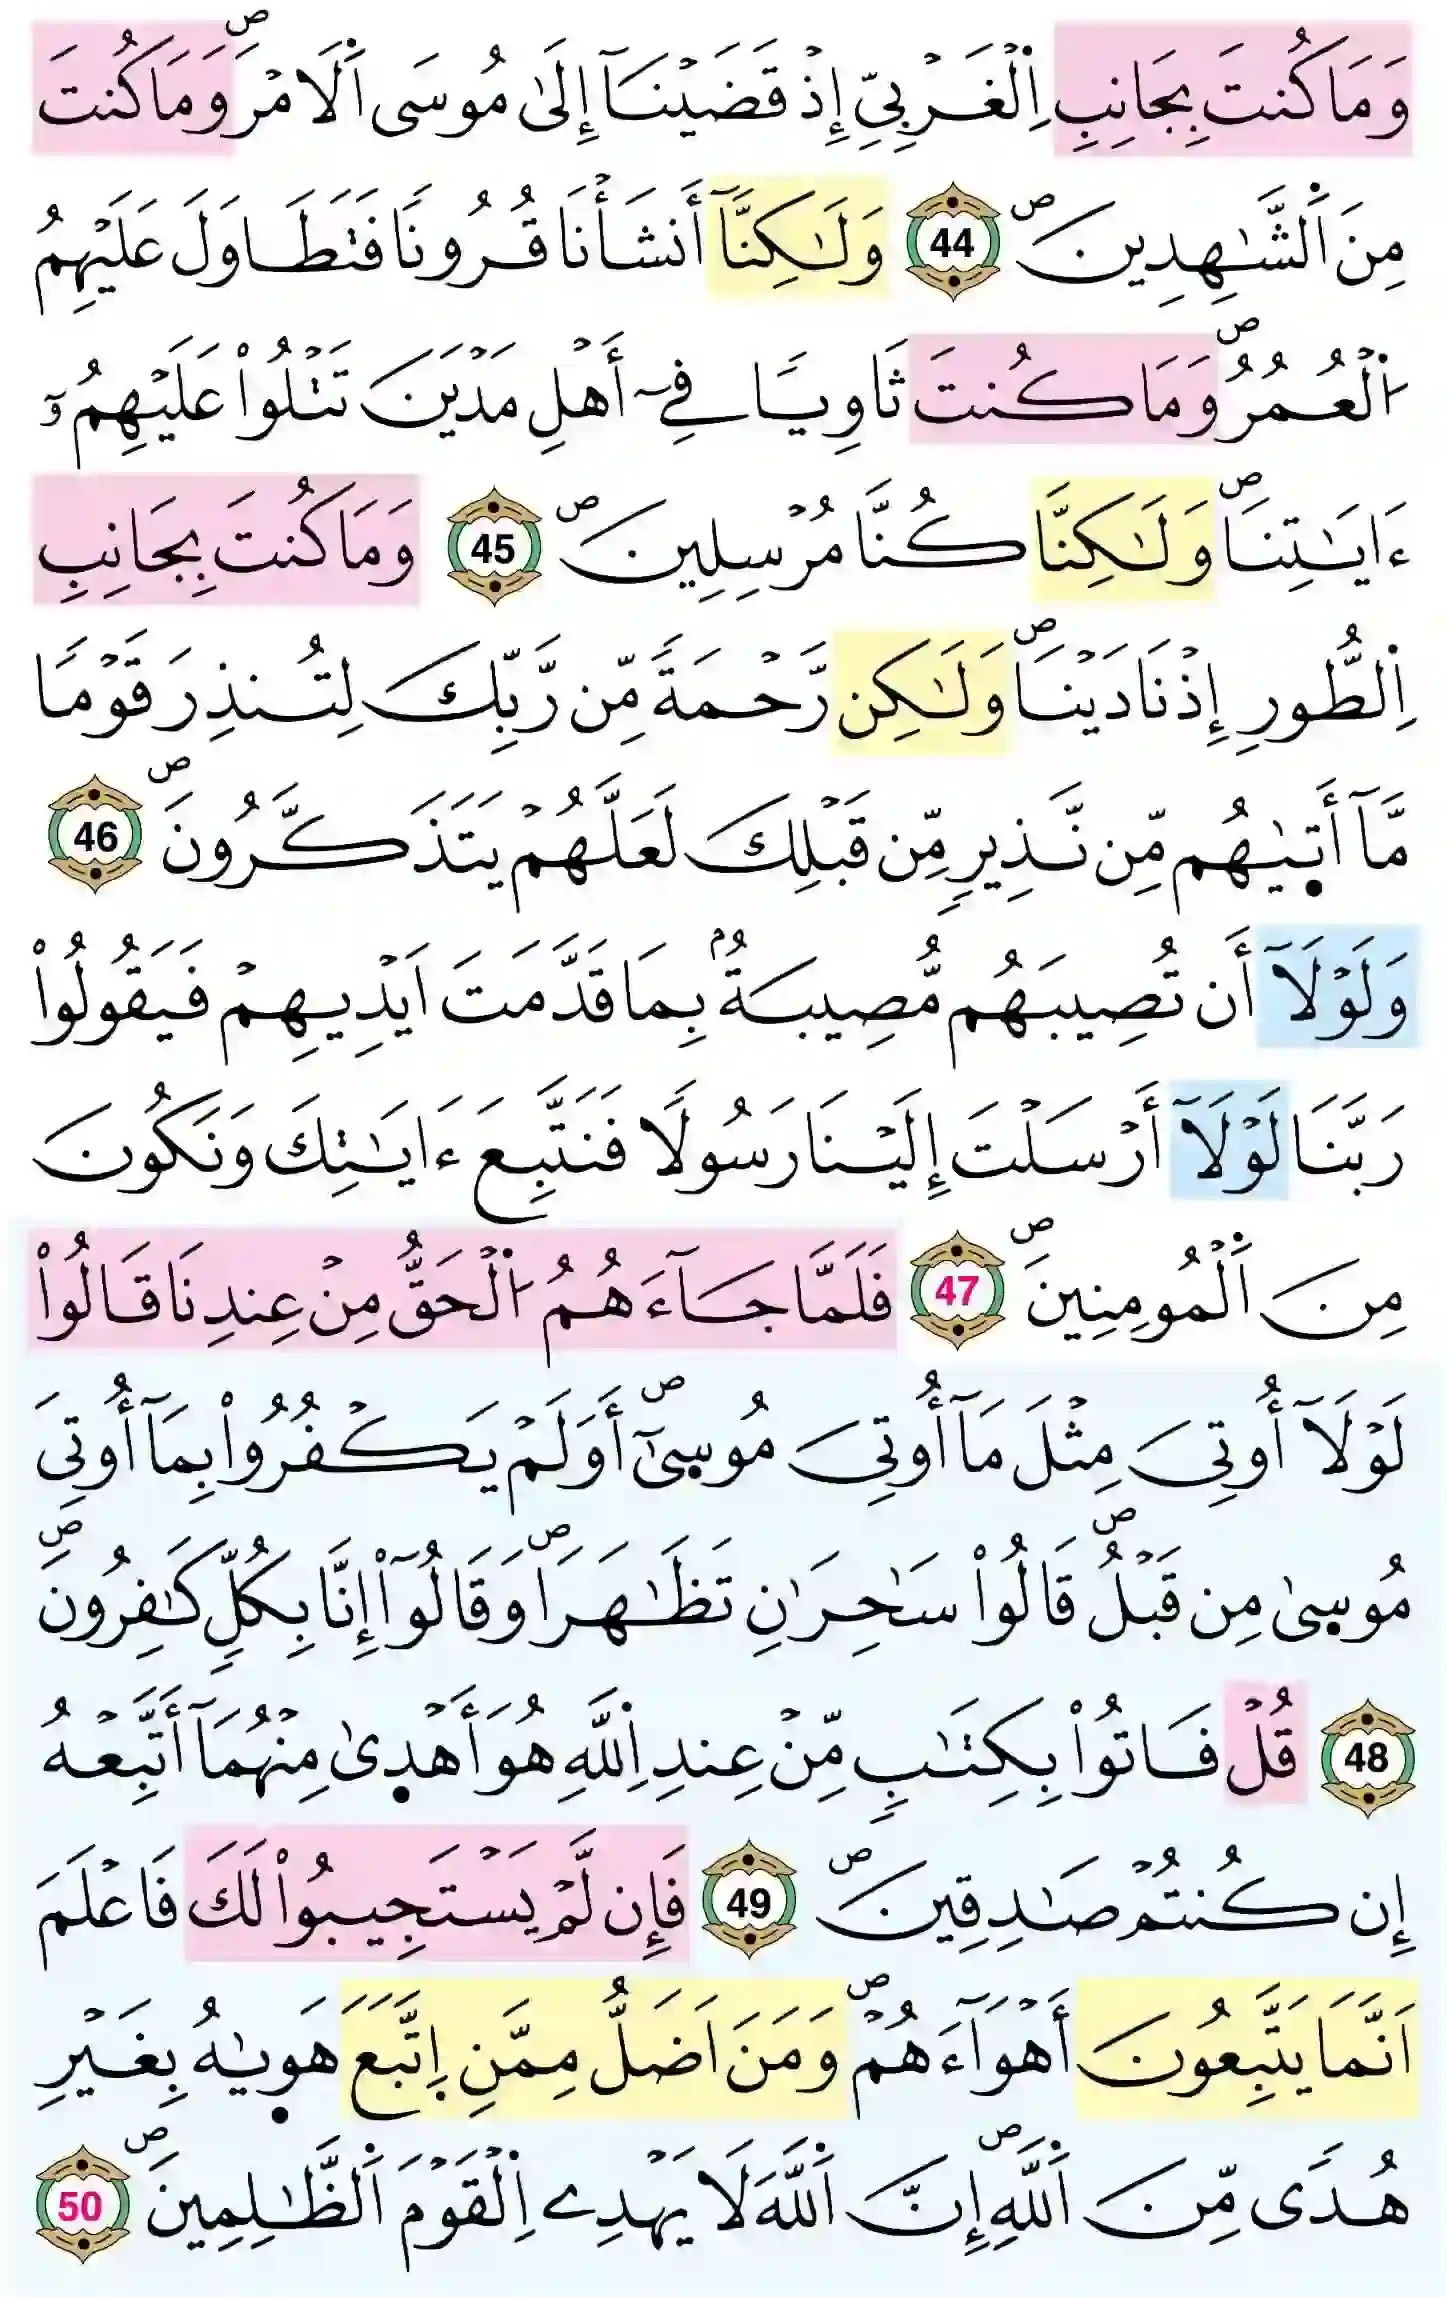 وَمَا كُنتَ بِجَانِبِ اِ۬لْغَرْبِيِّ إِذْ قَضَيْنَآ إِلَىٰ مُوسَى اَ۬لَامْرَۖ وَمَا كُنتَ
مِنَ اَ۬لشَّٰهِدِينَۖ 44 وَلَٰكِنَّآ أَنشَأْنَا قُرُوناٗ فَتَطَاوَلَ عَلَيْهِمُ
اُ۬لْعُمُرُۖ وَمَا كُنتَ ثَاوِياٗ فِےٓ أَهْلِ مَدْيَنَ تَتْلُواْ عَلَيْهِمُۥٓ
ءَايَٰتِنَاۖ وَلَٰكِنَّا كُنَّا مُرْسِلِينَۖ 45 وَمَا كُنتَ بِجَانِبِ
اِ۬لطُّورِ إِذْ نَادَيْنَاۖ وَلَٰكِن رَّحْمَةٗ مِّن رَّبِّكَ لِتُنذِرَ قَوْماٗ
مَّآ أَت۪يٰهُم مِّن نَّذِيرٖ مِّن قَبْلِكَ لَعَلَّهُمْ يَتَذَكَّرُونَۖ 46
وَلَوْلَآ أَن تُصِيبَهُم مُّصِيبَةُۢ بِمَا قَدَّمَتَ اَيْدِيهِمْ فَيَقُولُواْ
رَبَّنَا لَوْلَآ أَرْسَلْتَ إِلَيْنَا رَسُولاٗ فَنَتَّبِعَ ءَايَٰتِكَ وَنَكُونَ
مِنَ اَ۬لْمُومِنِينَۖ 47 فَلَمَّا جَآءَهُمُ اُ۬لْحَقُّ مِنْ عِندِنَا قَالُواْ
لَوْلَآ أُوتِيَ مِثْلَ مَآ أُوتِيَ مُوس۪ىٰٓۖ أَوَلَمْ يَكْفُرُواْ بِمَآ أُوتِيَ
مُوس۪ىٰ مِن قَبْلُۖ قَالُواْ سَٰحِرَٰنِ تَظَٰهَرَاۖ وَقَالُوٓاْ إِنَّا بِكُلّٖ كَٰفِرُونَۖ
48 قُلْ فَاتُواْ بِكِتَٰبٖ مِّنْ عِندِ اِ۬للَّهِ هُوَ أَهْد۪ىٰ مِنْهُمَآ أَتَّبِعْهُ
إِن كُنتُمْ صَٰدِقِينَۖ 49 فَإِن لَّمْ يَسْتَجِيبُواْ لَكَ فَاعْلَمَ
اَنَّمَا يَتَّبِعُونَ أَهْوَآءَهُمْۖ وَمَنَ اَضَلُّ مِمَّنِ اِ۪تَّبَعَ هَو۪يٰهُ بِغَيْرِ
هُدىٗ مِّنَ اَ۬للَّهِۖ إِنَّ اَ۬للَّهَ لَا يَهْدِے اِ۬لْقَوْمَ اَ۬لظَّٰلِمِينَۖ 50